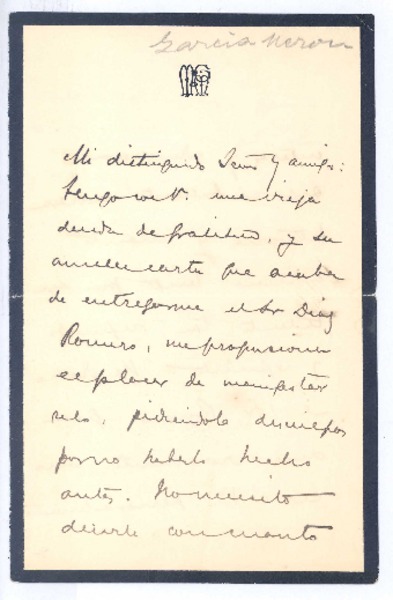 García Merou
Mi distinguido Señor y amigo:
Tengo con V. una vieja
deuda de gratitud, y su
amable carta que acaba
de entregarme el Sr Diaz
Romero, me proporciona
el placer de manifestár
selo, pidiéndole disculpas
por no haberlo hecho
antes. No necesito
decirle con cuanto